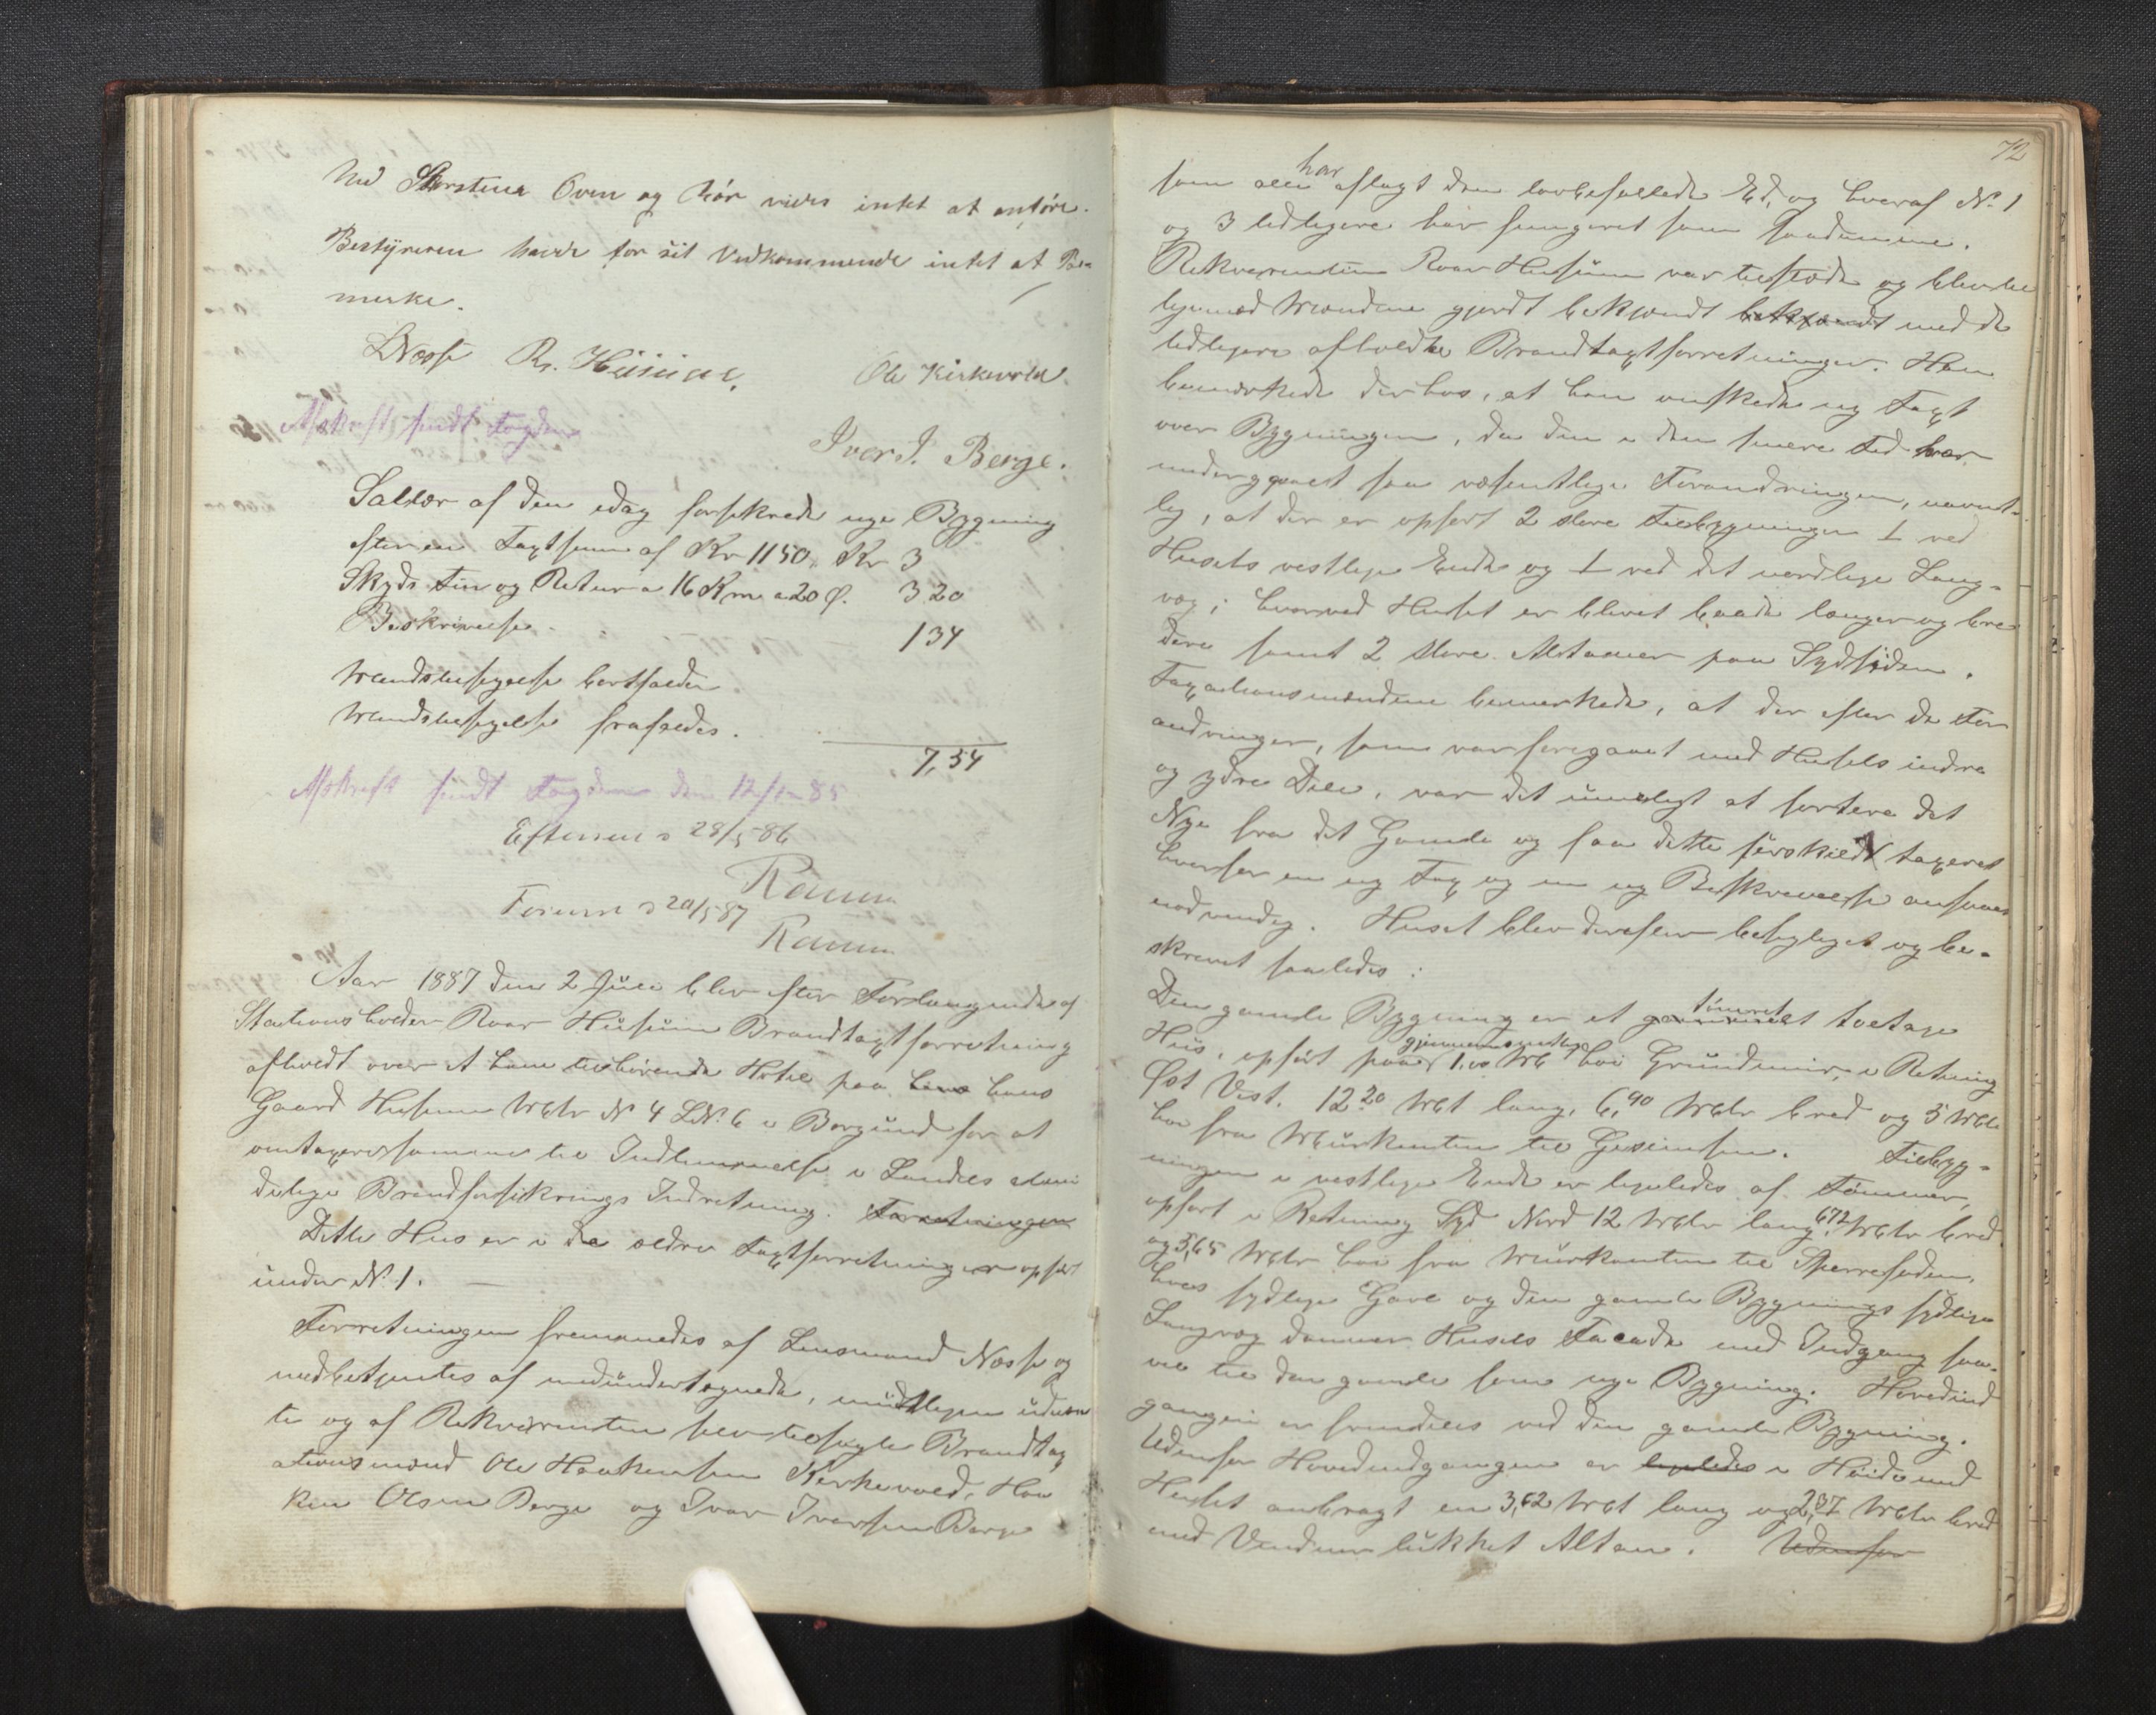 Ved Skorstene Ovne og Rör vides intet at anföre.
Bestyreren havde for sit Vedkommende intet at Be=
mærke.
LNæsse R. Husum. Ole Kirkevold.
Afskrift sendt Fogden
Iver I. Berge.
Salær af den idag forsikrede nye Bygning
efter en Taxtsum af Kr 1150, Kr 3
Skyds Frem og Retur a 16 Km a 20 Ø. 3 20
Beskrivelse 1 34
Mandsbesigelse bortfalder
Mandsbesigelse frafaldes.
7,54
Afskrift sendt Fogden den 12/1-85
Efterseet 28/5-86
Ramm
Foreviist 20/5 87
Ramm
Aar 1887 den 2 Juli blev efter Forlangende af
Stationsholder Roar Husum Brandtaxtforretning
afholdt over et ham tilhörende Hotel paa hans hans
Gaard Husum Matr N 4 LN. 6 i Borgund for at
omtaxere samme til Indlemmelse i Landets almin
delige Brandforsikrings Indretning. Forretningen
Dette Hus er i de ældre Taxtforretninger opfört
under N. 1.
Forretningen fremmedes af Lensmand Næsse og
medbetjentes af medundertegnede, mindtligen udnævn
te og af Rekvirenten selv tilsagte Brandtax
ationsmænd Ole Haakensen Kirkevold, Haa
ken Olsen Berge og Ivar Iversen Berge
72
som alle har aflagt den lovbefallede Ed, og hvoraf N. 1
og 3 tidligere har fungeret som saadanne.
Rekvirenten Roar Husum var tilstede og blev til
ligemed Mændene gjordt bekjendt bekjendt med de
tidligere afholdte Brandtaxtforretninger. Han
bemærkede derhos, at han ønskede ny Taxt
over Bygningen, da den i den senere Tid har
undergaaet saa væsentlige Forandringer, nævnt-
lig, at der er opført 2 store Tilbygninger 1 ved
Husets vestlige Ende og 1 ved det nordlige Lang-
væg; hvorved Huset er blevet baade længer og bre
dere samt 2 store Altaner paa Sydsiden.
Taxationsmændene bemærkede, at der efter de For
andringer, som var foregaaet med Husets indre
og ydre Dele, var det umuligt at sortere det
Nye fra det Gamle og faa dette særskildt taxeret
hvorfor en ny Tax og en ny Beskrivelse ansaaes
nødvendig. Huset blev derefter besigtiget og be-
skrevet saaledes:
Den gamle Bygning er et gammelt tömret toetages
Hus, opfört paa gjennemsnitlig 1,00 Mt höi Grundmur, i Retning
Øst Vest. 12,20 Met lang, 6,90 Metr bred og 5 Metr
höi fra Murkanten til Gesimsen. Tilbyg-
ningen i vestlige Ende er ligeledes af Tömmer,
opfört i Retning Syd Nord 12 Metr lang 6,72 Metr bred
og 5,65 Metr höi fra Murkanten til Sperrefoden,
hvis sydlige Gavl og den gamle Bygnings sydlige
Langvæg danner Husets Facade med Indgang saa-
vel til den gamle som nye Bygning. Hovedind
gangen er fremdeles ved den gamle Bygning.
Udenfor Hovedindgangen er ligeledes i Høide med
Huset anbragt en 3,62 Met lang og 2,37 Metr bred
med Vinduer lukket Altan. Udenfor